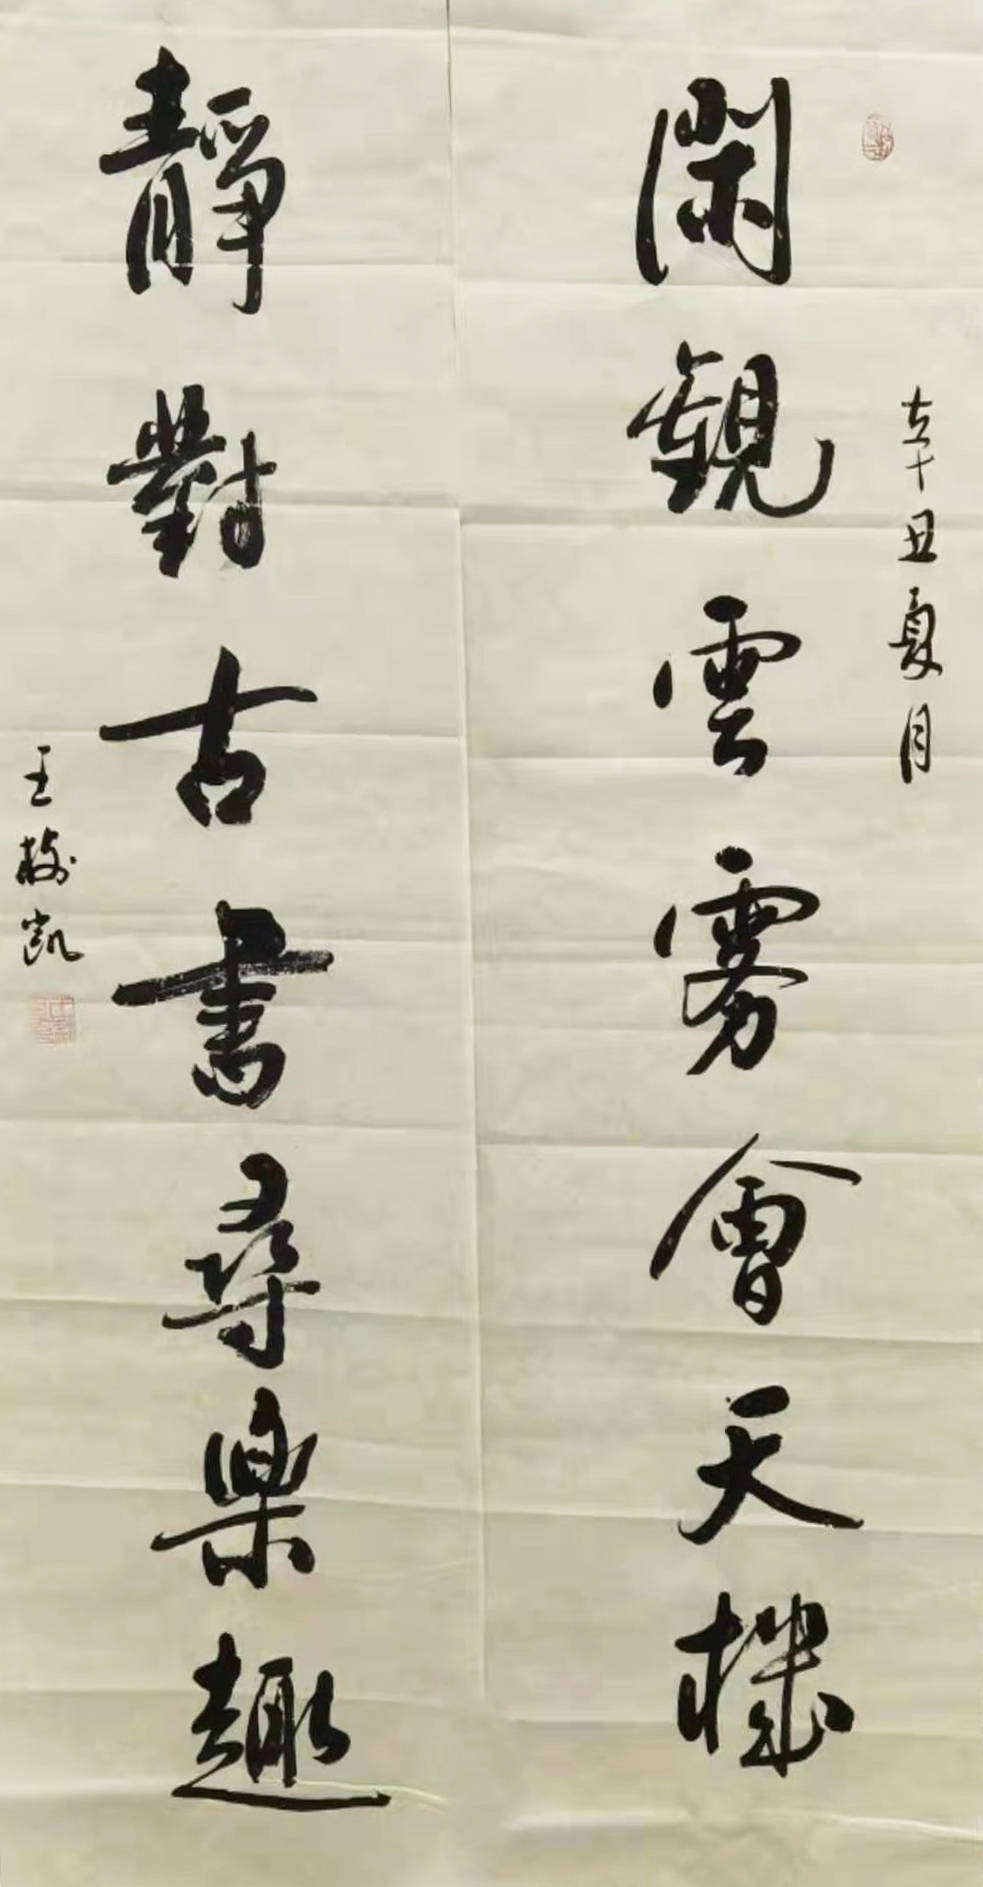 辛丑夏月
閑觀雲霧會天機
靜對古書尋樂趣
王樹凱